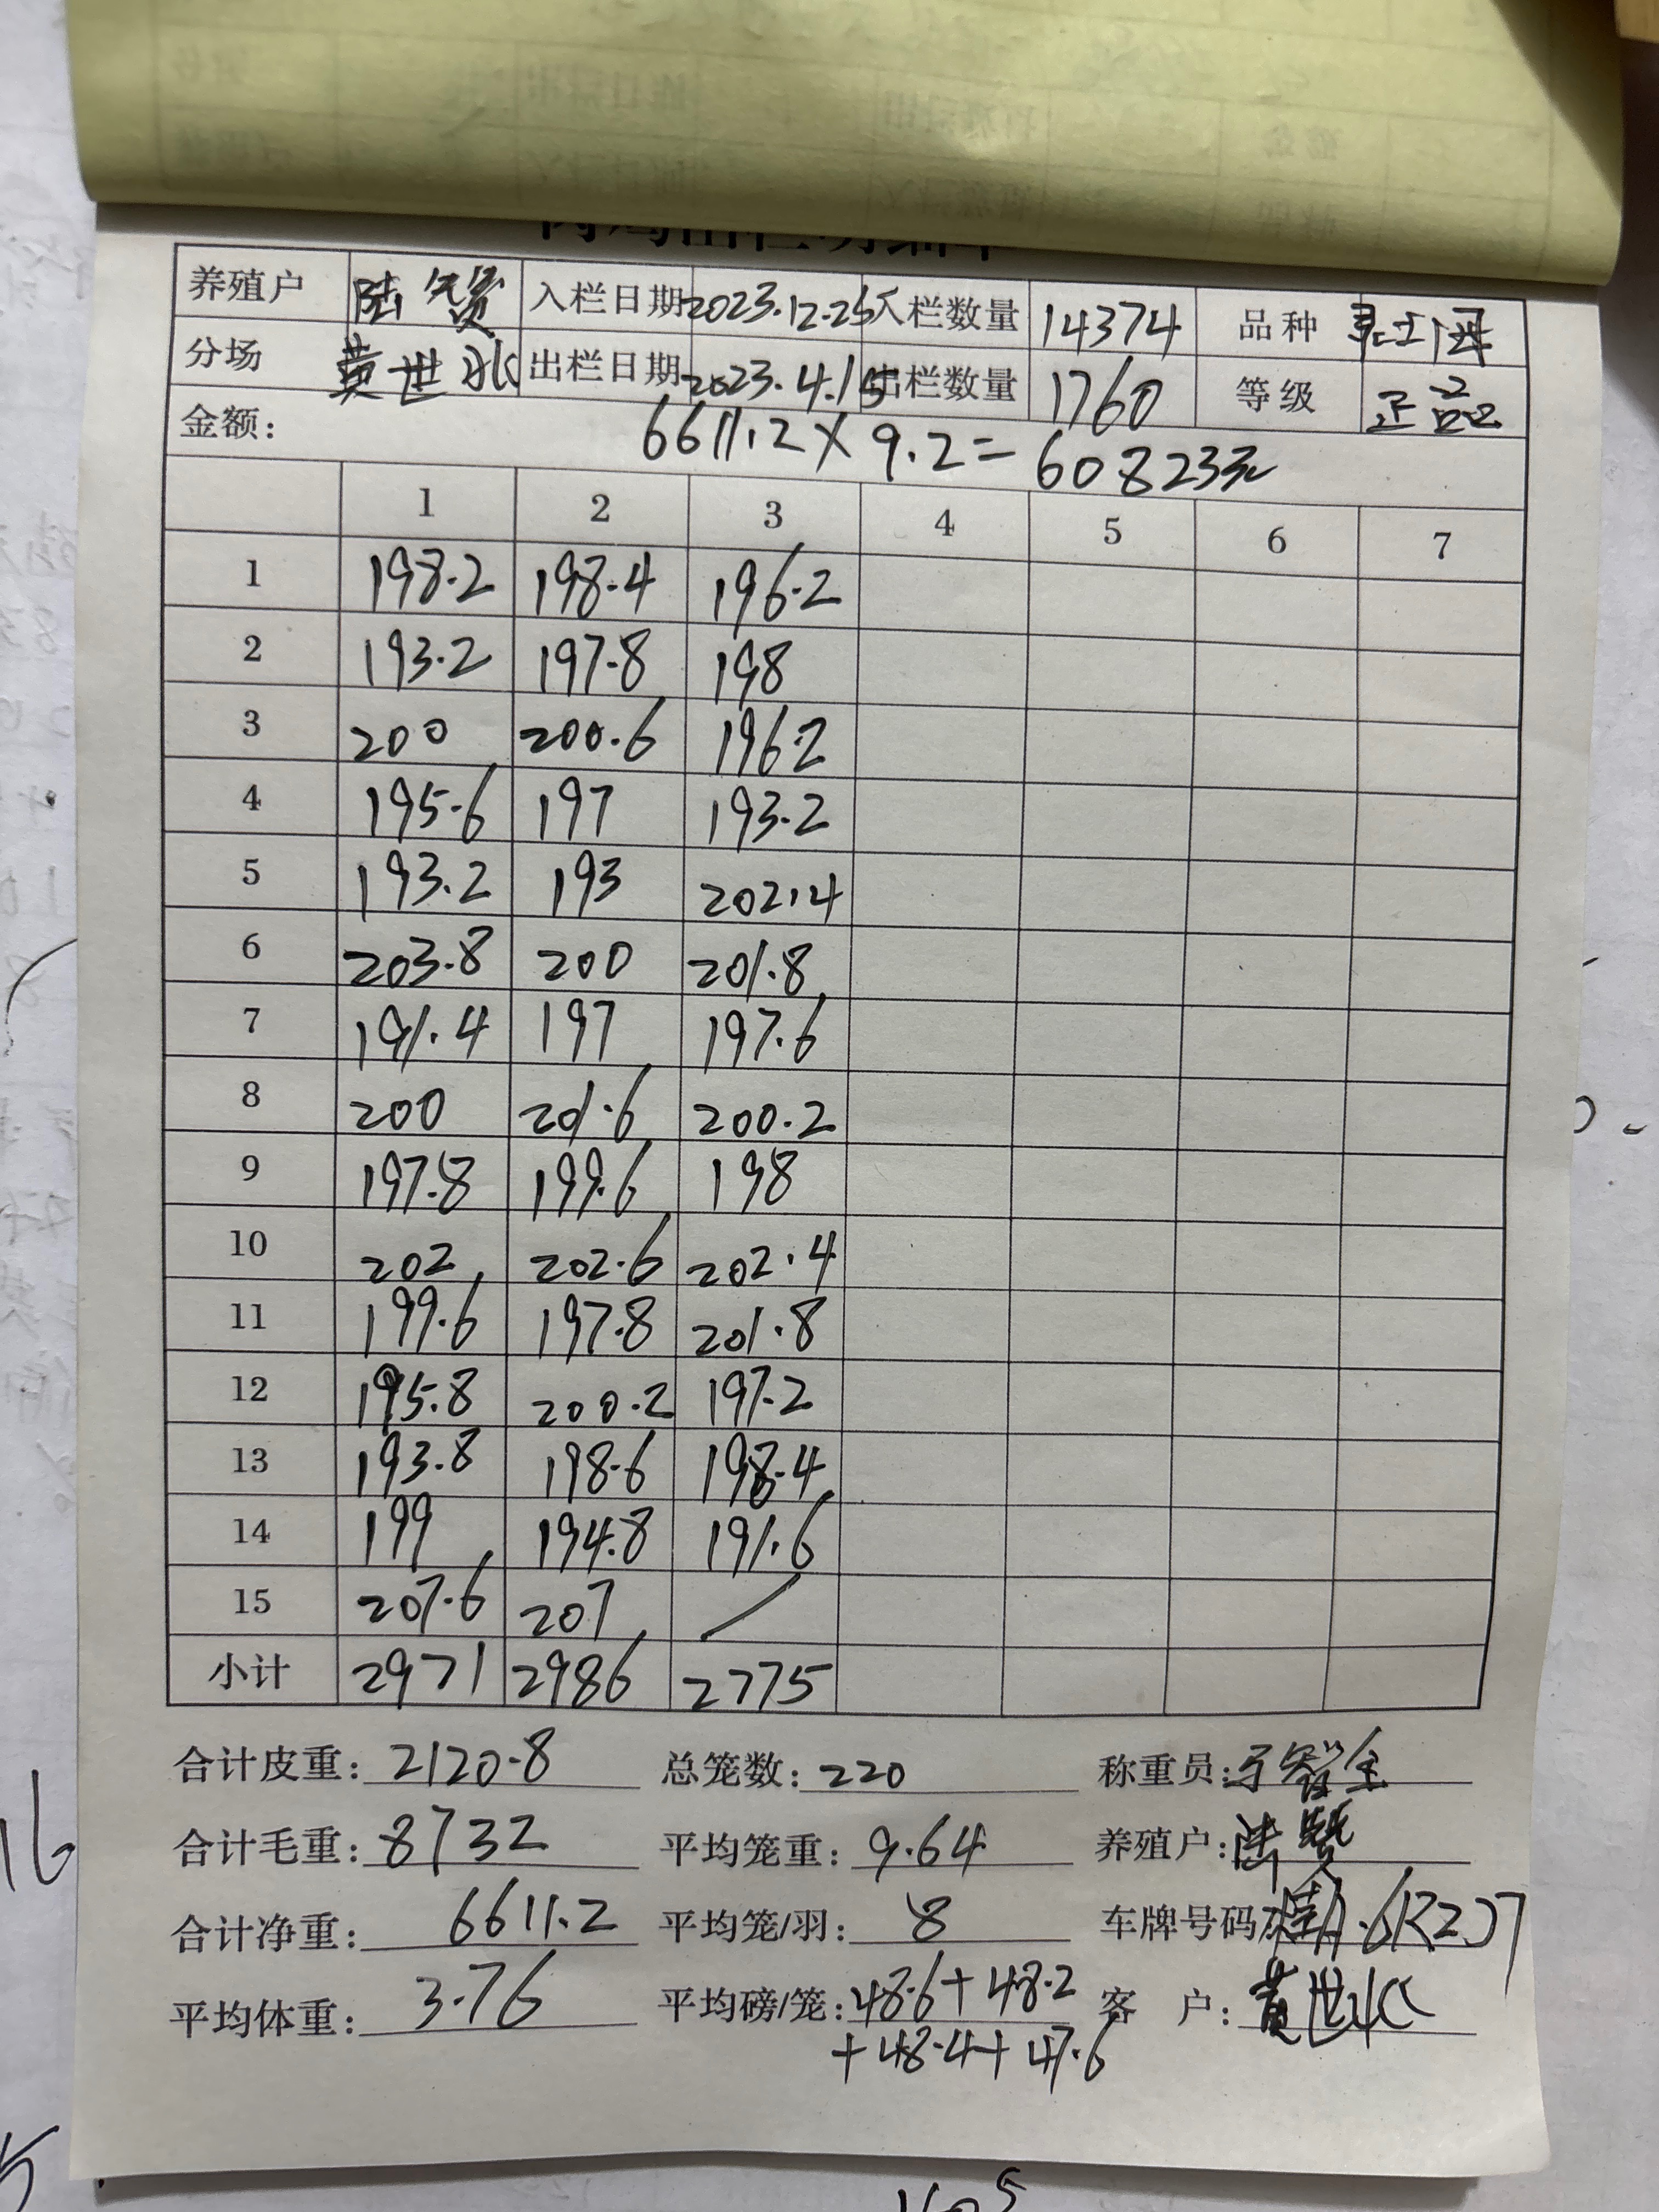 养殖户 陆贤 入栏日期 2023.12.25 入栏数量 14374 品种
分场 黄世 出栏日期 2023.4.15 出栏数量 1760 等级 正品
金额: 6611.2×9.2=60823元
1 2 3 4 5 6 7
1 198.2 198.4 196.2
2 193.2 197.8 198
3 200 200.6 196.2
4 195.6 197 193.2
5 193.2 193 202.4
6 203.8 200 201.8
7 191.4 197 197.6
8 200 201.6 200.2
9 197.8 199.6 198
10 202 202.6 202.4
11 199.6 197.8 201.8
12 195.8 200.2 197.2
13 193.8 198.6 198.4
14 199 194.8 191.6
15 207.6 207 /
小计 2971 2986 2775
合计皮重: 2120.8 总笼数: 220 称重员:
合计毛重: 8732 平均笼重: 9.64 养殖户: 陆
合计净重: 6611.2 平均笼/羽: 8 车牌号码:
平均体重: 3.76 平均磅/笼: 48.6+48.2 客 户: 黄世
+48.4+47.6